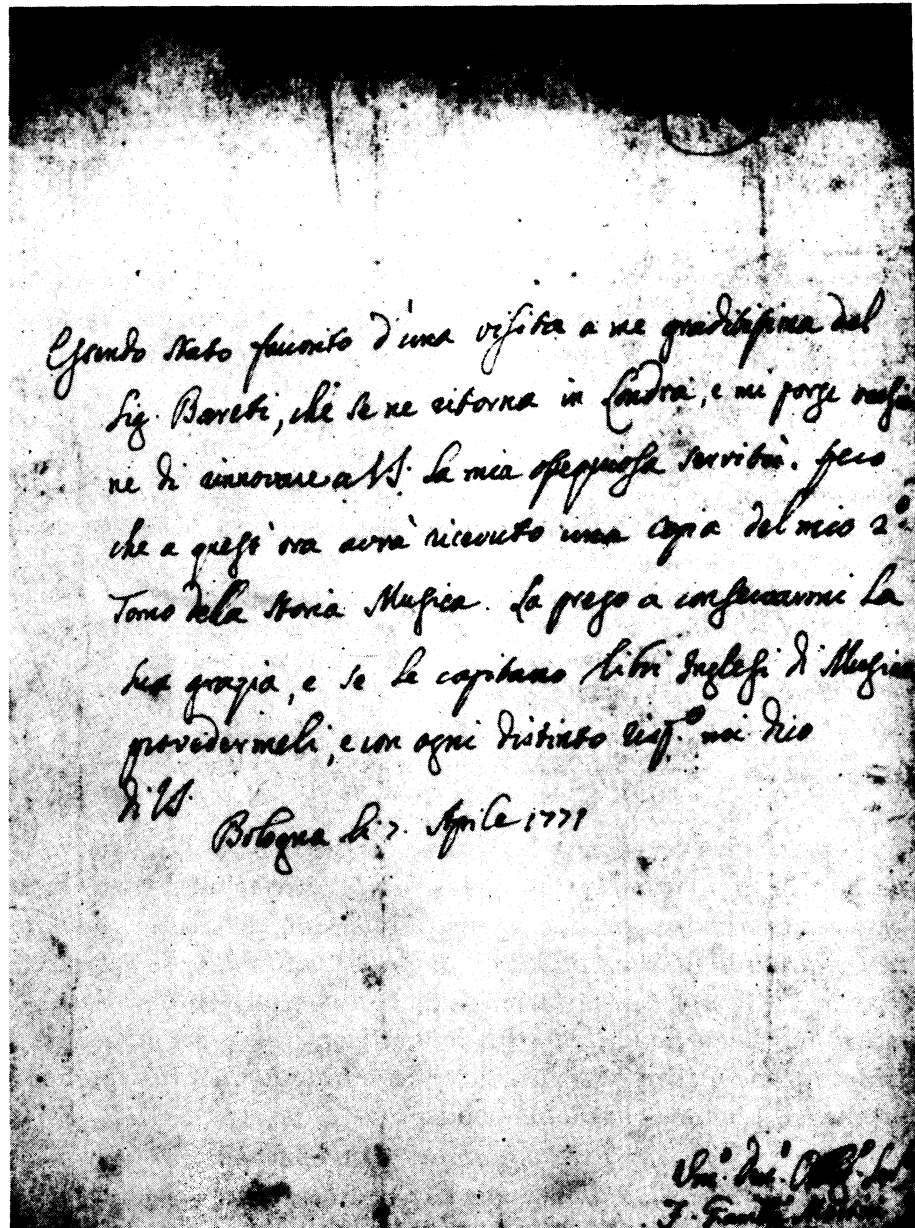 Essendo stato favorito d'una visita a me graditissima dal
Sig. Baretti, che se ne ritorna in Londra, e mi porge
ne di rinnovare a V.S. la mia ossequiosa servitù. spero
che a quest'ora avrà ricevuto una copia del mio 2°
Tomo della Storia Musica. La prego a conservarmi La
sua grazia, e se Le capitano libri Inglesi di Musica
provedermeli, e con ogni distinto risp.° mi dico
di V.S.
Bologna li 7. Aprile 1771
F.